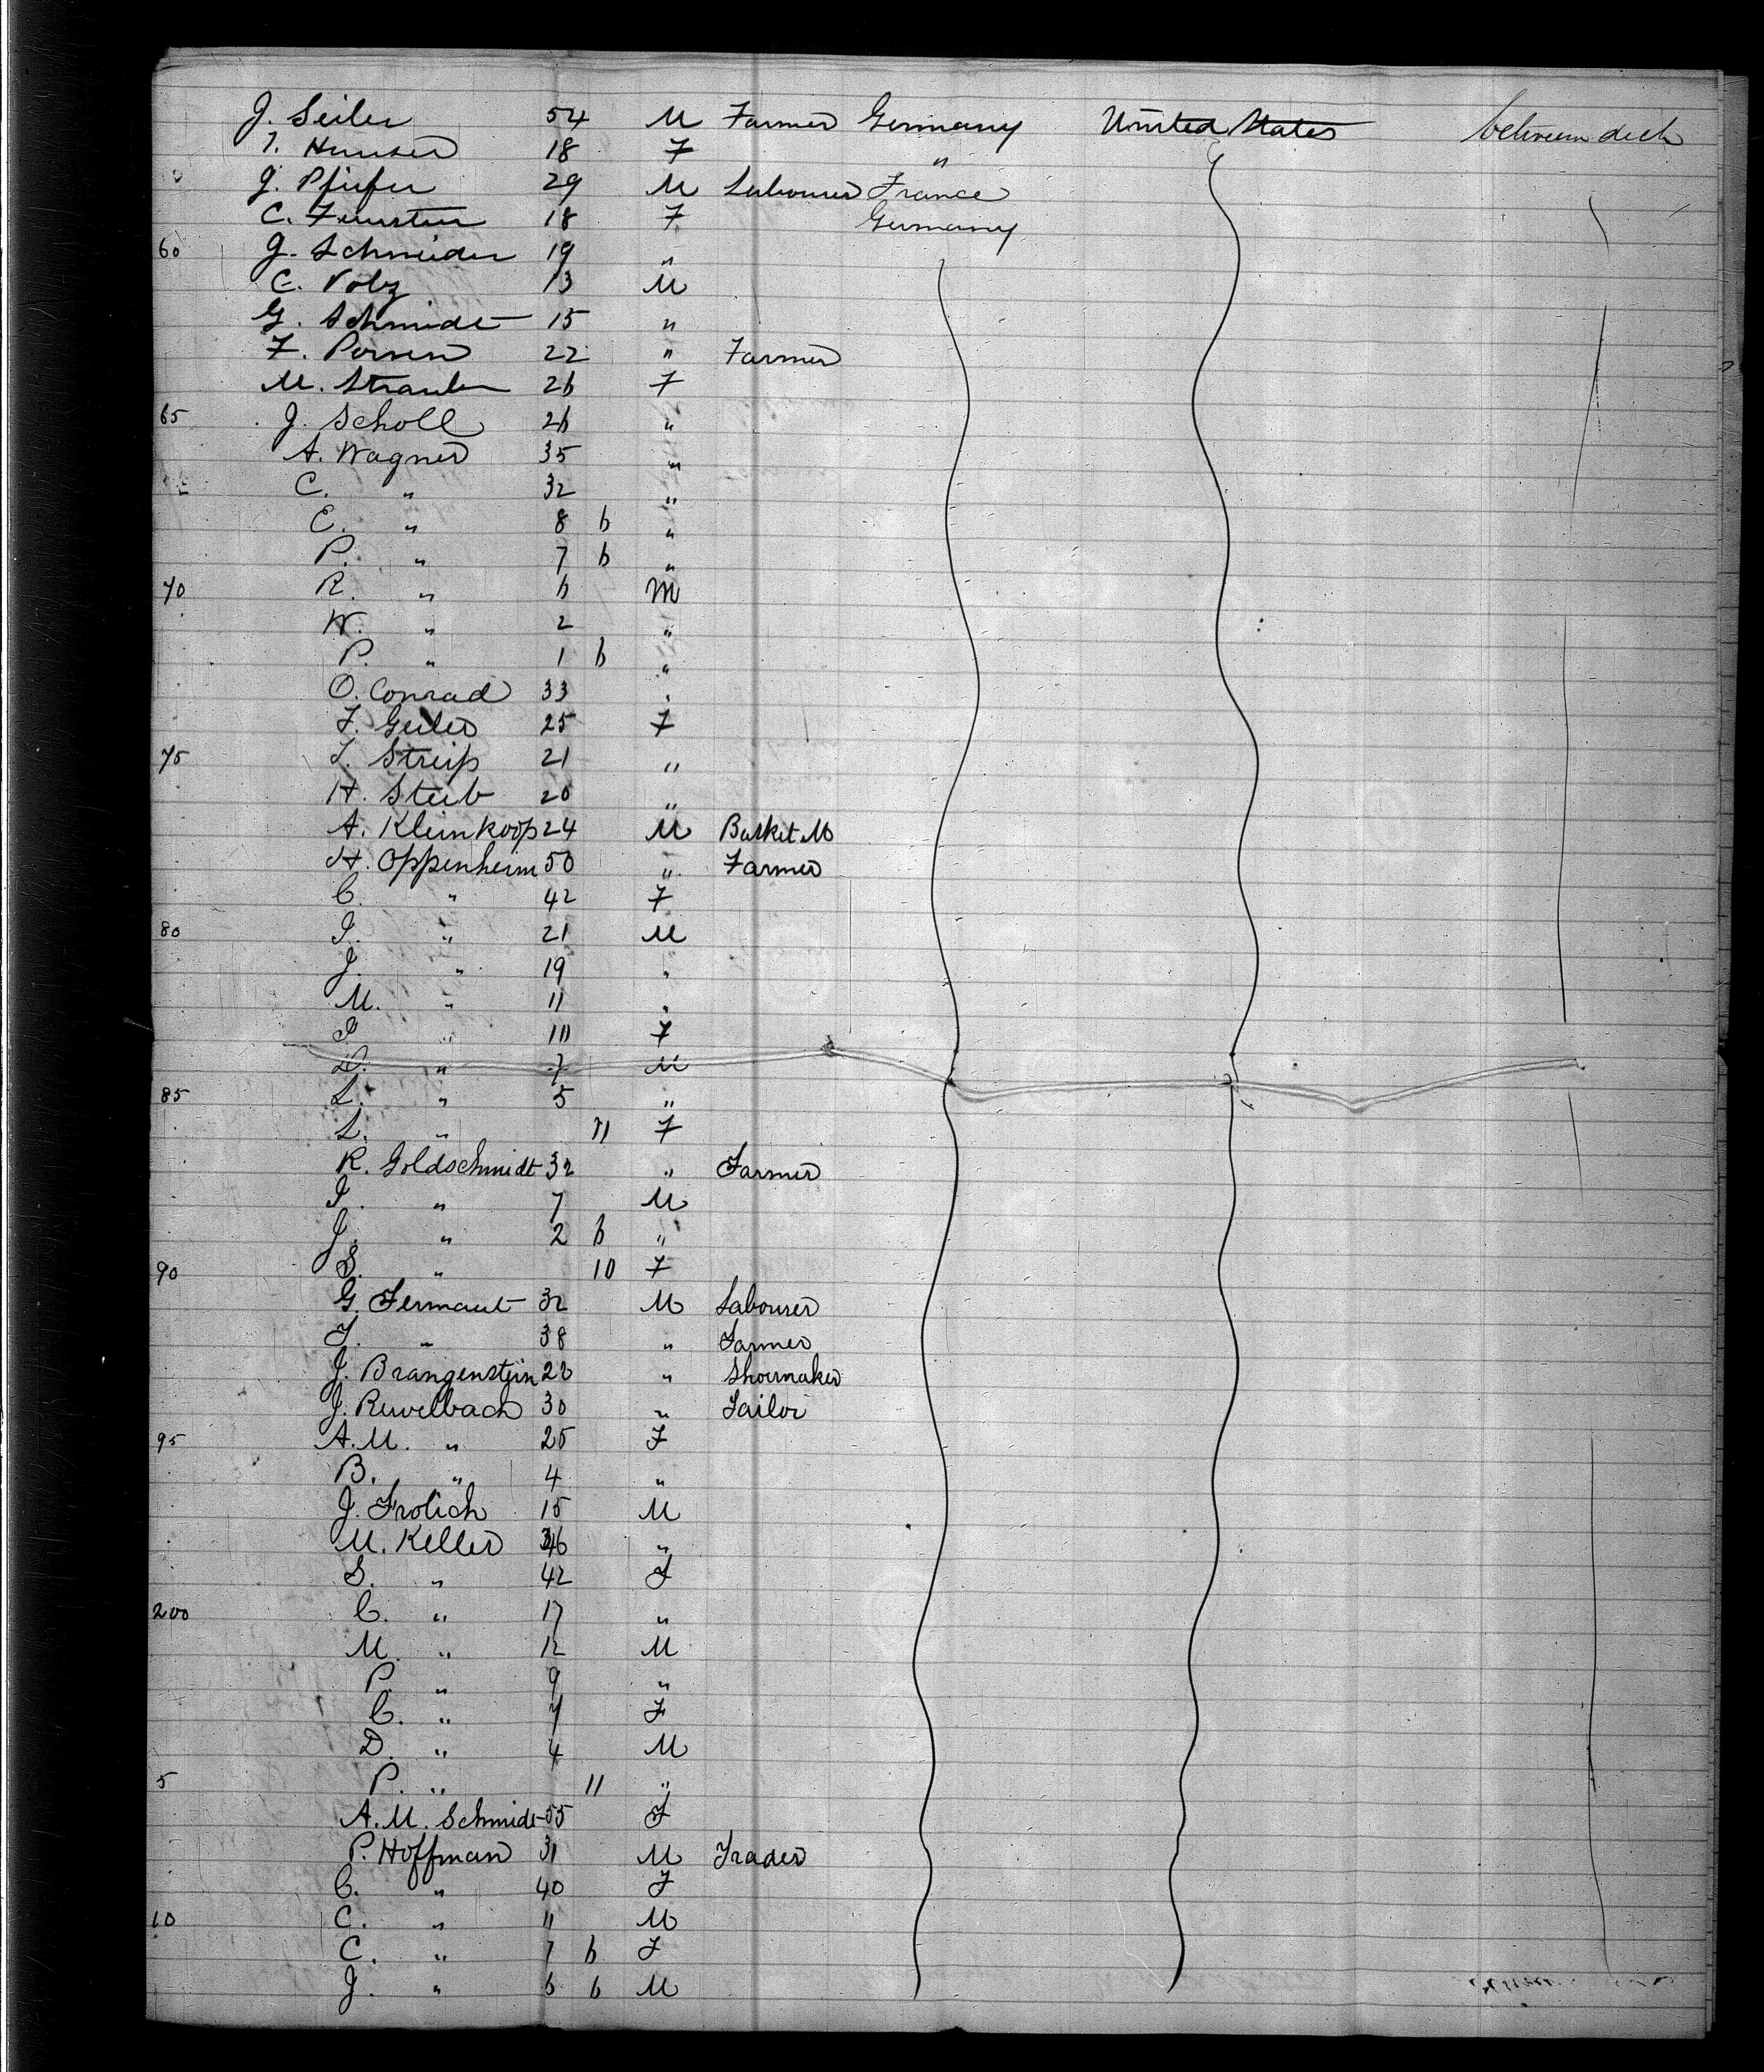 J. Seiler 54 M Farmer Germany United States between deck
18 F "
J. Pfeifer 29 M Labourer France
C. 18 F Germany
60 J. Schneider 19 "
C. Volz 13 M
G. Schmidt 15 "
F. 22 " Farmer
M. Strauben 26 F
65 J. Scholl 26 "
A. Wagner 35 "
C. " 32 "
E. " 8 6 "
P. " 7 6 "
70 R. " 6 M
W. " 2 "
P. " 1 6 "
O. Conrad 33 "
F. Geiler 25 F
75 L. Streiß 21 "
H. Steib 20 "
A. Kleinkoop 24 M Basket M
H. Oppenheim 50 " Farmer
C. " 42 F
80 I. " 21 M
J. " 19 "
M. " 11 "
I. " 10 F
D. " 7 M
85 L. " 5 "
L. " 11 F
R. Goldschmidt 32 " Farmer
I. " 7 M
J. " 2 6 "
90 S. " 10 F
G. Fermaut 32 M Labourer
F. " 38 " Farmer
J. Brangenstein 22 " Shoemaker
J. Rewelbach 30 " Tailor
95 A.M. " 25 F
B. " 4 "
J. Frolich 15 M
M. Keller 46 "
S. " 42 F
200 C. " 17 "
M. " 12 M
P. " 9 "
C. " 7 F
D. " 4 M
5 P. " 11 "
A.M. Schmidt 55 F
P. Hoffman 31 M Trader
C. " 40 F
10 C. " 11 M
C. " 7 6 F
J. " 6 6 M